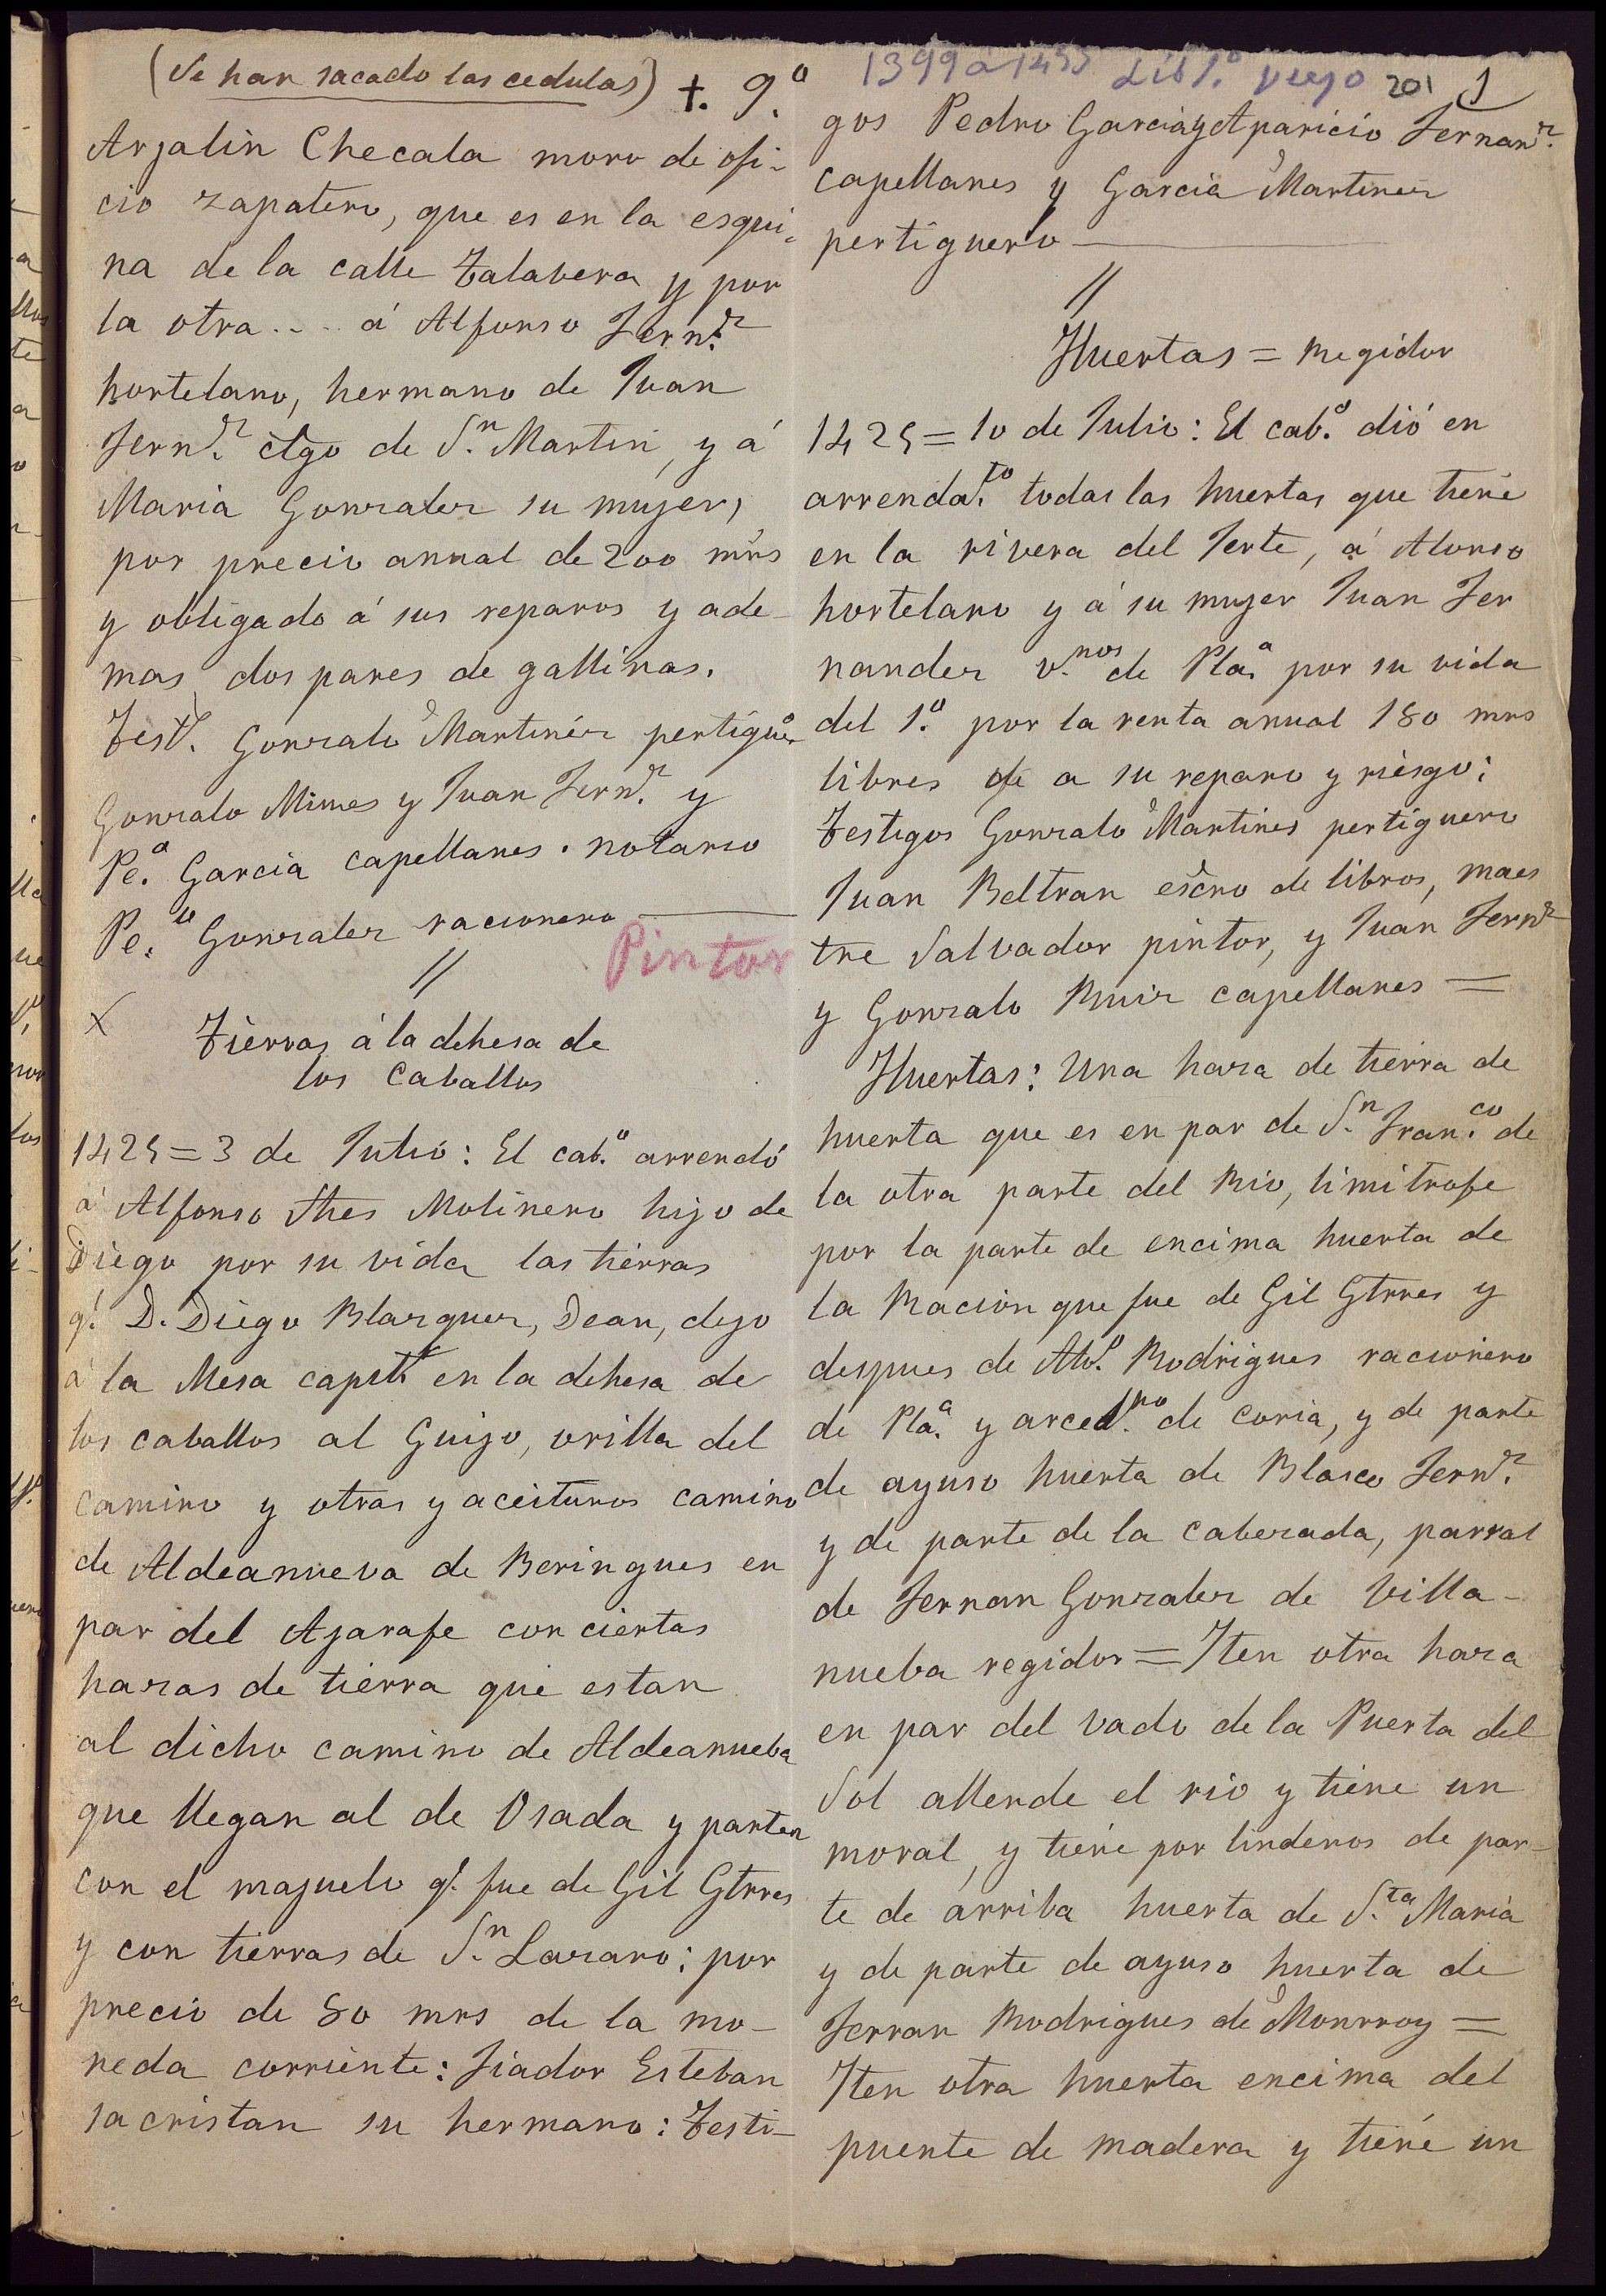 (Se han sacado las cedulas) +. 9.º
Arjalin Checala moro de ofi-
cio zapatero, que es en la esqui-
na de la calle Talavera y por
la otra .... á Alfonso Fern.z
hortelano, hermano de Juan
Fern.z clgo de S.n Martin, y á
Maria Gonzalez su mujer,
por precio annal de 200 mrs
y obligado á sus reparos y ade-
mas dos pares de gallinas.
Test.s Gonzalo Martinez pertiguero
Gonzalo Mimes y Juan Fern.z y
Pe.º Garcia capellanes. notario
Pe.º Gonzalez racionero
//
Pintor
x Tierras á la dehesa de
los Caballos
1425 = 3 de Julio: El cab.º arrendó
á Alfonso Shes Molinero hijo de
Diego por su vida las tierras
q.e D. Diego Blazquez, Dean, dejo
á la Mesa capitr en la dehesa de
los caballos al Guijo, orilla del
camino y otras y aceitunos camino
de Aldeanueva de Beringues en
par del Ajarafe con ciertas
hazas de tierra que estan
al dicho camino de Aldeanueba
que llegan al de Osada y parten
con el majuelo q.e fue de Gil Gtrres
y con tierras de S.n Lazaro; por
precio de 80 mrs de la mo-
neda corriente: Fiador Esteban
sacristan su hermano: Testi-
1399 a 1453 Lib 1.º viejo 201 1
gos Pedro Garcia y Aparicio Fernan.z
capellanes y Garcia Martinez
pertiguero
//
Huertas = Regidor
1425 = 10 de Julio: El cab.º dió en
arrenda.to todas las huertas que tiene
en la rivera del Jerte, á Alonso
hortelano y á su mujer Juan Fer
nandez v.nos de Pla.a por su vida
del 1.º por la renta anual 180 mrs
libres de a su reparo y riesgo;
Testigos Gonzalo Martines pertiguero
Juan Beltran escro de libros, maes
tre Salvador pintor, y Juan Fern.z
y Gonzalo Ruiz capellanes =
Huertas: Una haza de tierra de
huerta que es en par de S.n Fran.co de
la otra parte del Rio, limitrofe
por la parte de encima huerta de
la Racion que fue de Gil Gtrres y
despues de Alv.º Rodrigues racionero
de Pla.a y arced.no de coria, y de parte
de ayuso huerta de Blasco Fern.z
y de parte de la cabezada, parral
de Fernan Gonzalez de Villa-
nueba regidor = Iten otra haza
en par del vado de la Puerta del
Sol allende el rio y tiene un
moral, y tiene por linderos de par-
te de arriba huerta de S.ta Maria
y de parte de ayuso huerta de
Ferran Rodrigues de Monrroy =
Iten otra huerta encima del
puente de madera y tiene un